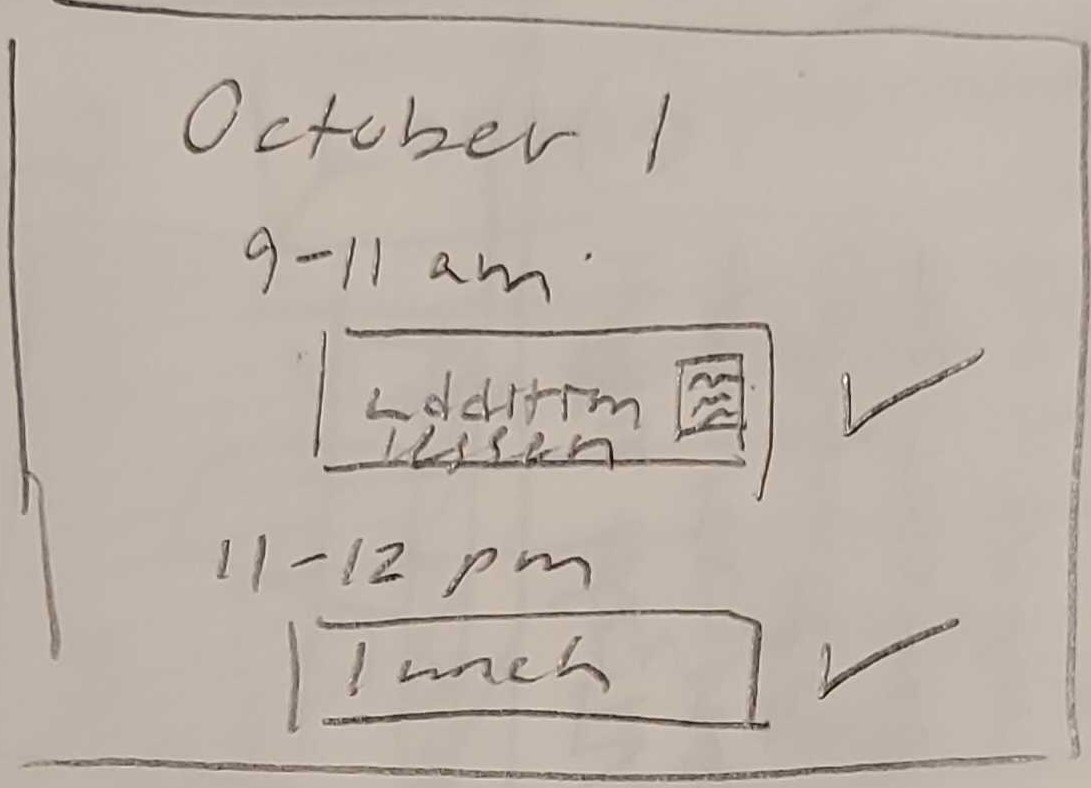 October 1
9-11 am
addition
lesson
11-12 pm
lunch